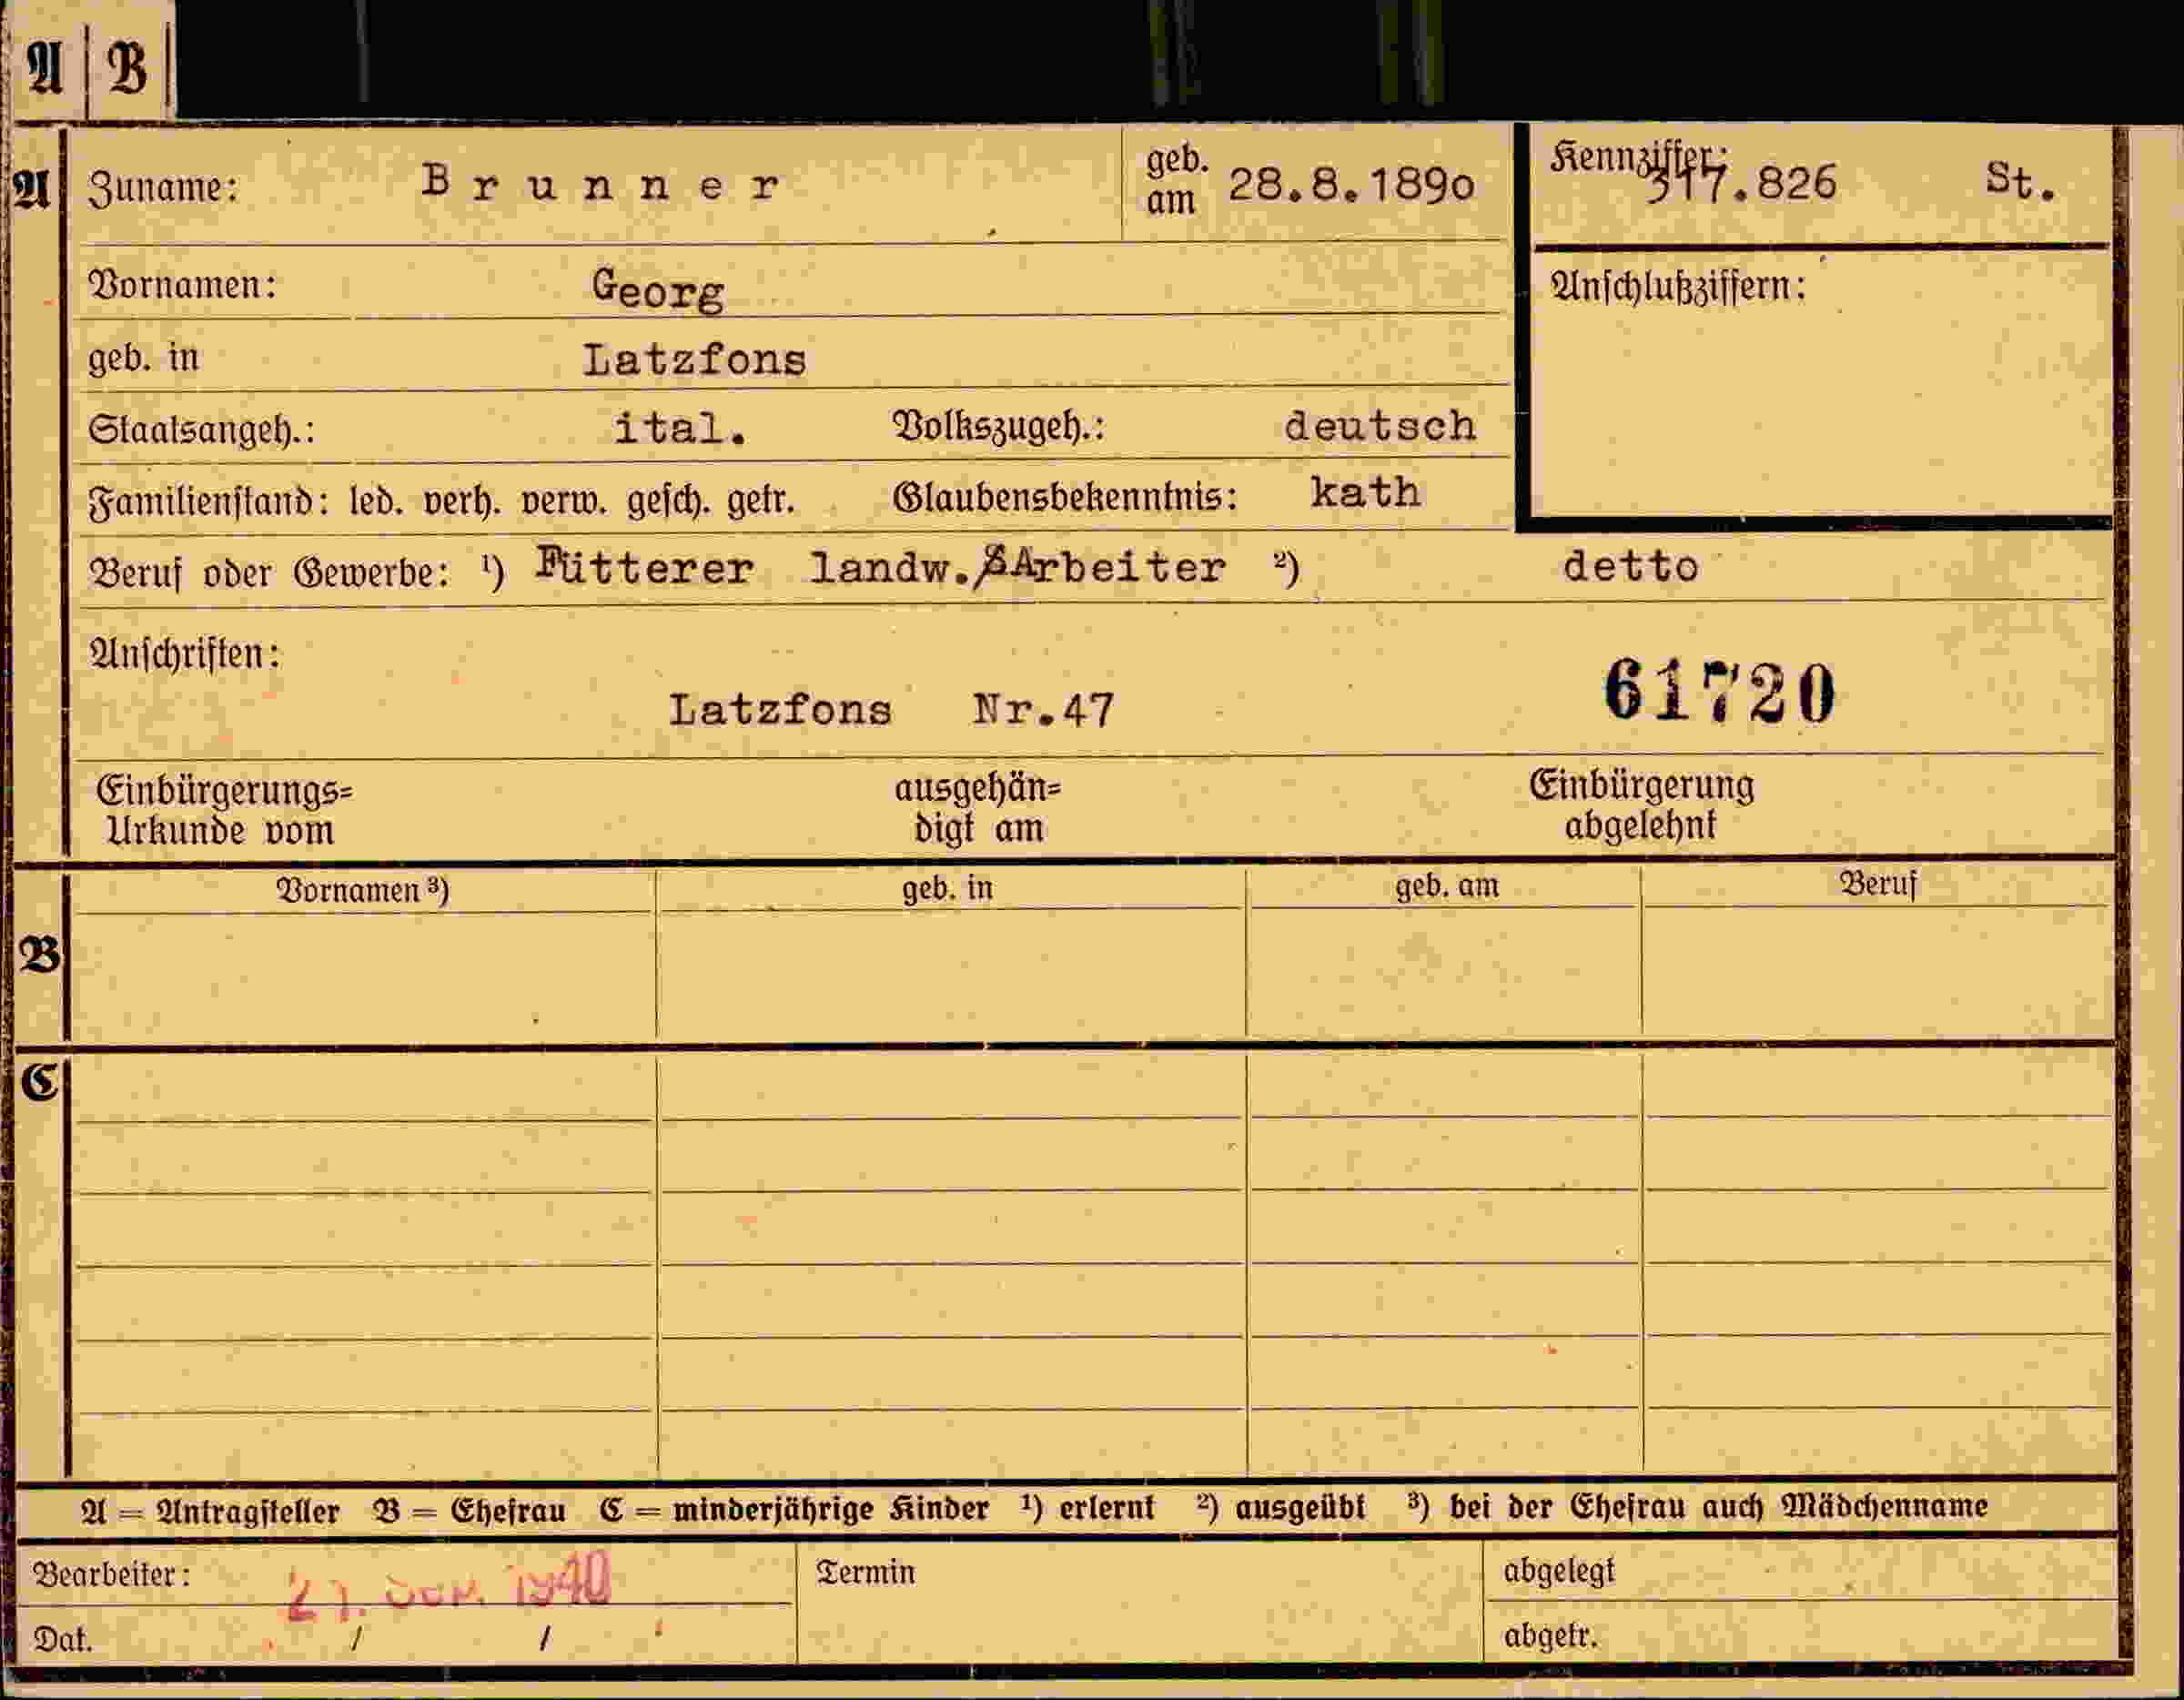 A B
A Zuname: Brunner geb. am 28.8.1890 Kennziffer: 317.826 St.
Vornamen: Georg Anschlußziffern:
geb. in Latzfons
Staatsangeh.: ital. Volkszugeh.: deutsch
Familienstand: led. verh. verw. gesch. getr. Glaubensbekenntnis: kath
Beruf oder Gewerbe: ¹) Fütterer landw. Arbeiter ²) detto
Anschriften:
61720
Latzfons Nr.47
Einbürgerungs= ausgehän= Einbürgerung
Urkunde vom digt am abgelehnt
Vornamen ³) geb. in geb. am Beruf
B
C
A = Antragsteller B = Ehefrau C = minderjährige Kinder ¹) erlernt ²) ausgeübt ³) bei der Ehefrau auch Mädchenname
Bearbeiter: 1940 Termin abgelegt
Dat. / / abgetr.